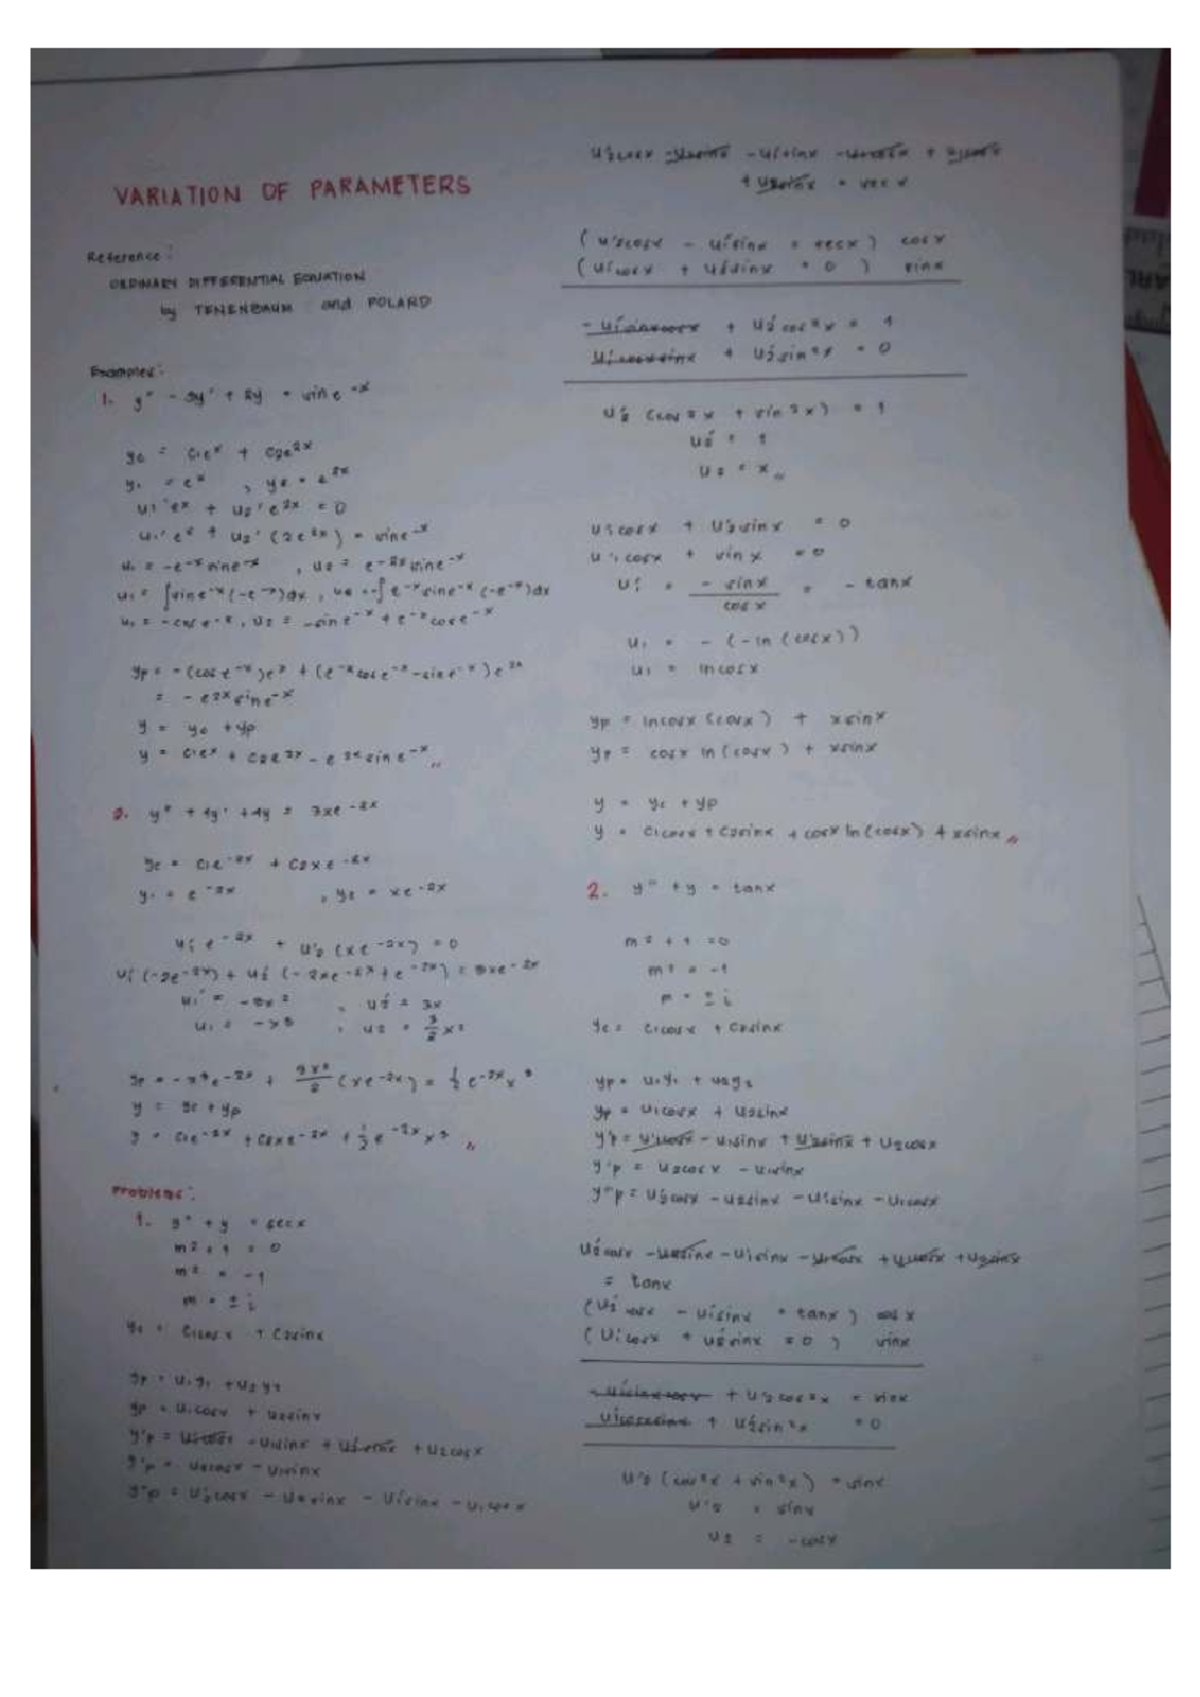 VARIATION OF PARAMETERS
Reference:
ORDINARY DIFFERENTIAL EQUATION
by TENENBAUM and POLARD
Examples:
1. y'' - 3y' + 2y = sin e^-x
yc = c1e^x + c2e^2x
y1 = e^x , y2 = e^2x
u1'e^x + u2'e^2x = 0
u1'e^x + u2'(2e^2x) = sine^-x
u1 = -e^-x sine^-x , u2 = e^-2x sine^-x
u1 = ∫sine^-x(-e^-x)dx , u2 = -∫e^-x sine^-x(-e^-x)dx
u1 = -cos e^-x , u2 = -sin e^-x + e^-x cos e^-x
yp = -(cos e^-x)e^x + (e^-x cos e^-x - sin e^-x)e^2x
= -e^2x sine^-x
y = yc + yp
y = c1e^x + c2e^2x - e^2x sin e^-x
2. y'' + 4y' + 4y = 3xe^-2x
yc = c1e^-2x + c2xe^-2x
y1 = e^-2x , y2 = xe^-2x
u1'e^-2x + u'2(xe^-2x) = 0
u1'(-2e^-2x) + u2'(-2xe^-2x + e^-2x) = 3xe^-2x
u1' = -3x^2 , u2' = 3x
u1 = -x^3 , u2 = 3/2 x^2
y = yc + yp
y = c1e^-2x + c2xe^-2x + 1/2 e^-2x x^3
Problems:
1. y'' + y = secx
m^2 + 1 = 0
m^2 = -1
m = ± i
yc = c1cosx + c2sinx
yp = u1y1 + u2y2
yp = u1cosx + u2sinx
y'p = u1'cosx - u1sinx + u2'sinx + u2cosx
y'p = u2cosx - u1sinx
y''p = u'2cosx - u2sinx - u1'sinx - u1cosx
u'2cosx - u2sinx - u1'sinx - u1cosx + u1cosx
+ u2sinx = sec x
(u'2cosx - u1'sinx = secx) cosx
(u1'cosx + u2'sinx = 0) sinx
- u1'sinxcosx + u2'cos^2x = 1
u1'cosxsinx + u2'sin^2x = 0
u2'(cos^2x + sin^2x) = 1
u2' = 1
u2 = x
u1'cosx + u'2sinx = 0
u'1cosx + sinx = 0
u1' = -sinx/cosx = -tanx
u1 = -(-ln(cosx))
u1 = lncosx
yp = lncosx(cosx) + xsinx
yp = cosx ln(cosx) + xsinx
y = yc + yp
y = c1cosx + c2sinx + cosx ln(cosx) + xsinx
2. y'' + y = tanx
m^2 + 1 = 0
m^2 = -1
m = ± i
yc = c1cosx + c2sinx
yp = u1y1 + u2y2
yp = u1cosx + u2sinx
y'p = u'1cosx - u1sinx + u'2sinx + u2cosx
y'p = u2cosx - u1sinx
y''p = u2'cosx - u2sinx - u1'sinx - u1cosx
u2'cosx - u2sinx - u1'sinx - u1cosx + u1cosx + u2sinx
= tanx
(u2'cosx - u1'sinx = tanx) cosx
(u1'cosx + u2'sinx = 0) sinx
- u1'sinxcosx + u'2cos^2x = sinx
u1'cosxsinx + u2'sin^2x = 0
u'2(cos^2x + sin^2x) = sinx
u'2 = sinx
u2 = -cosx